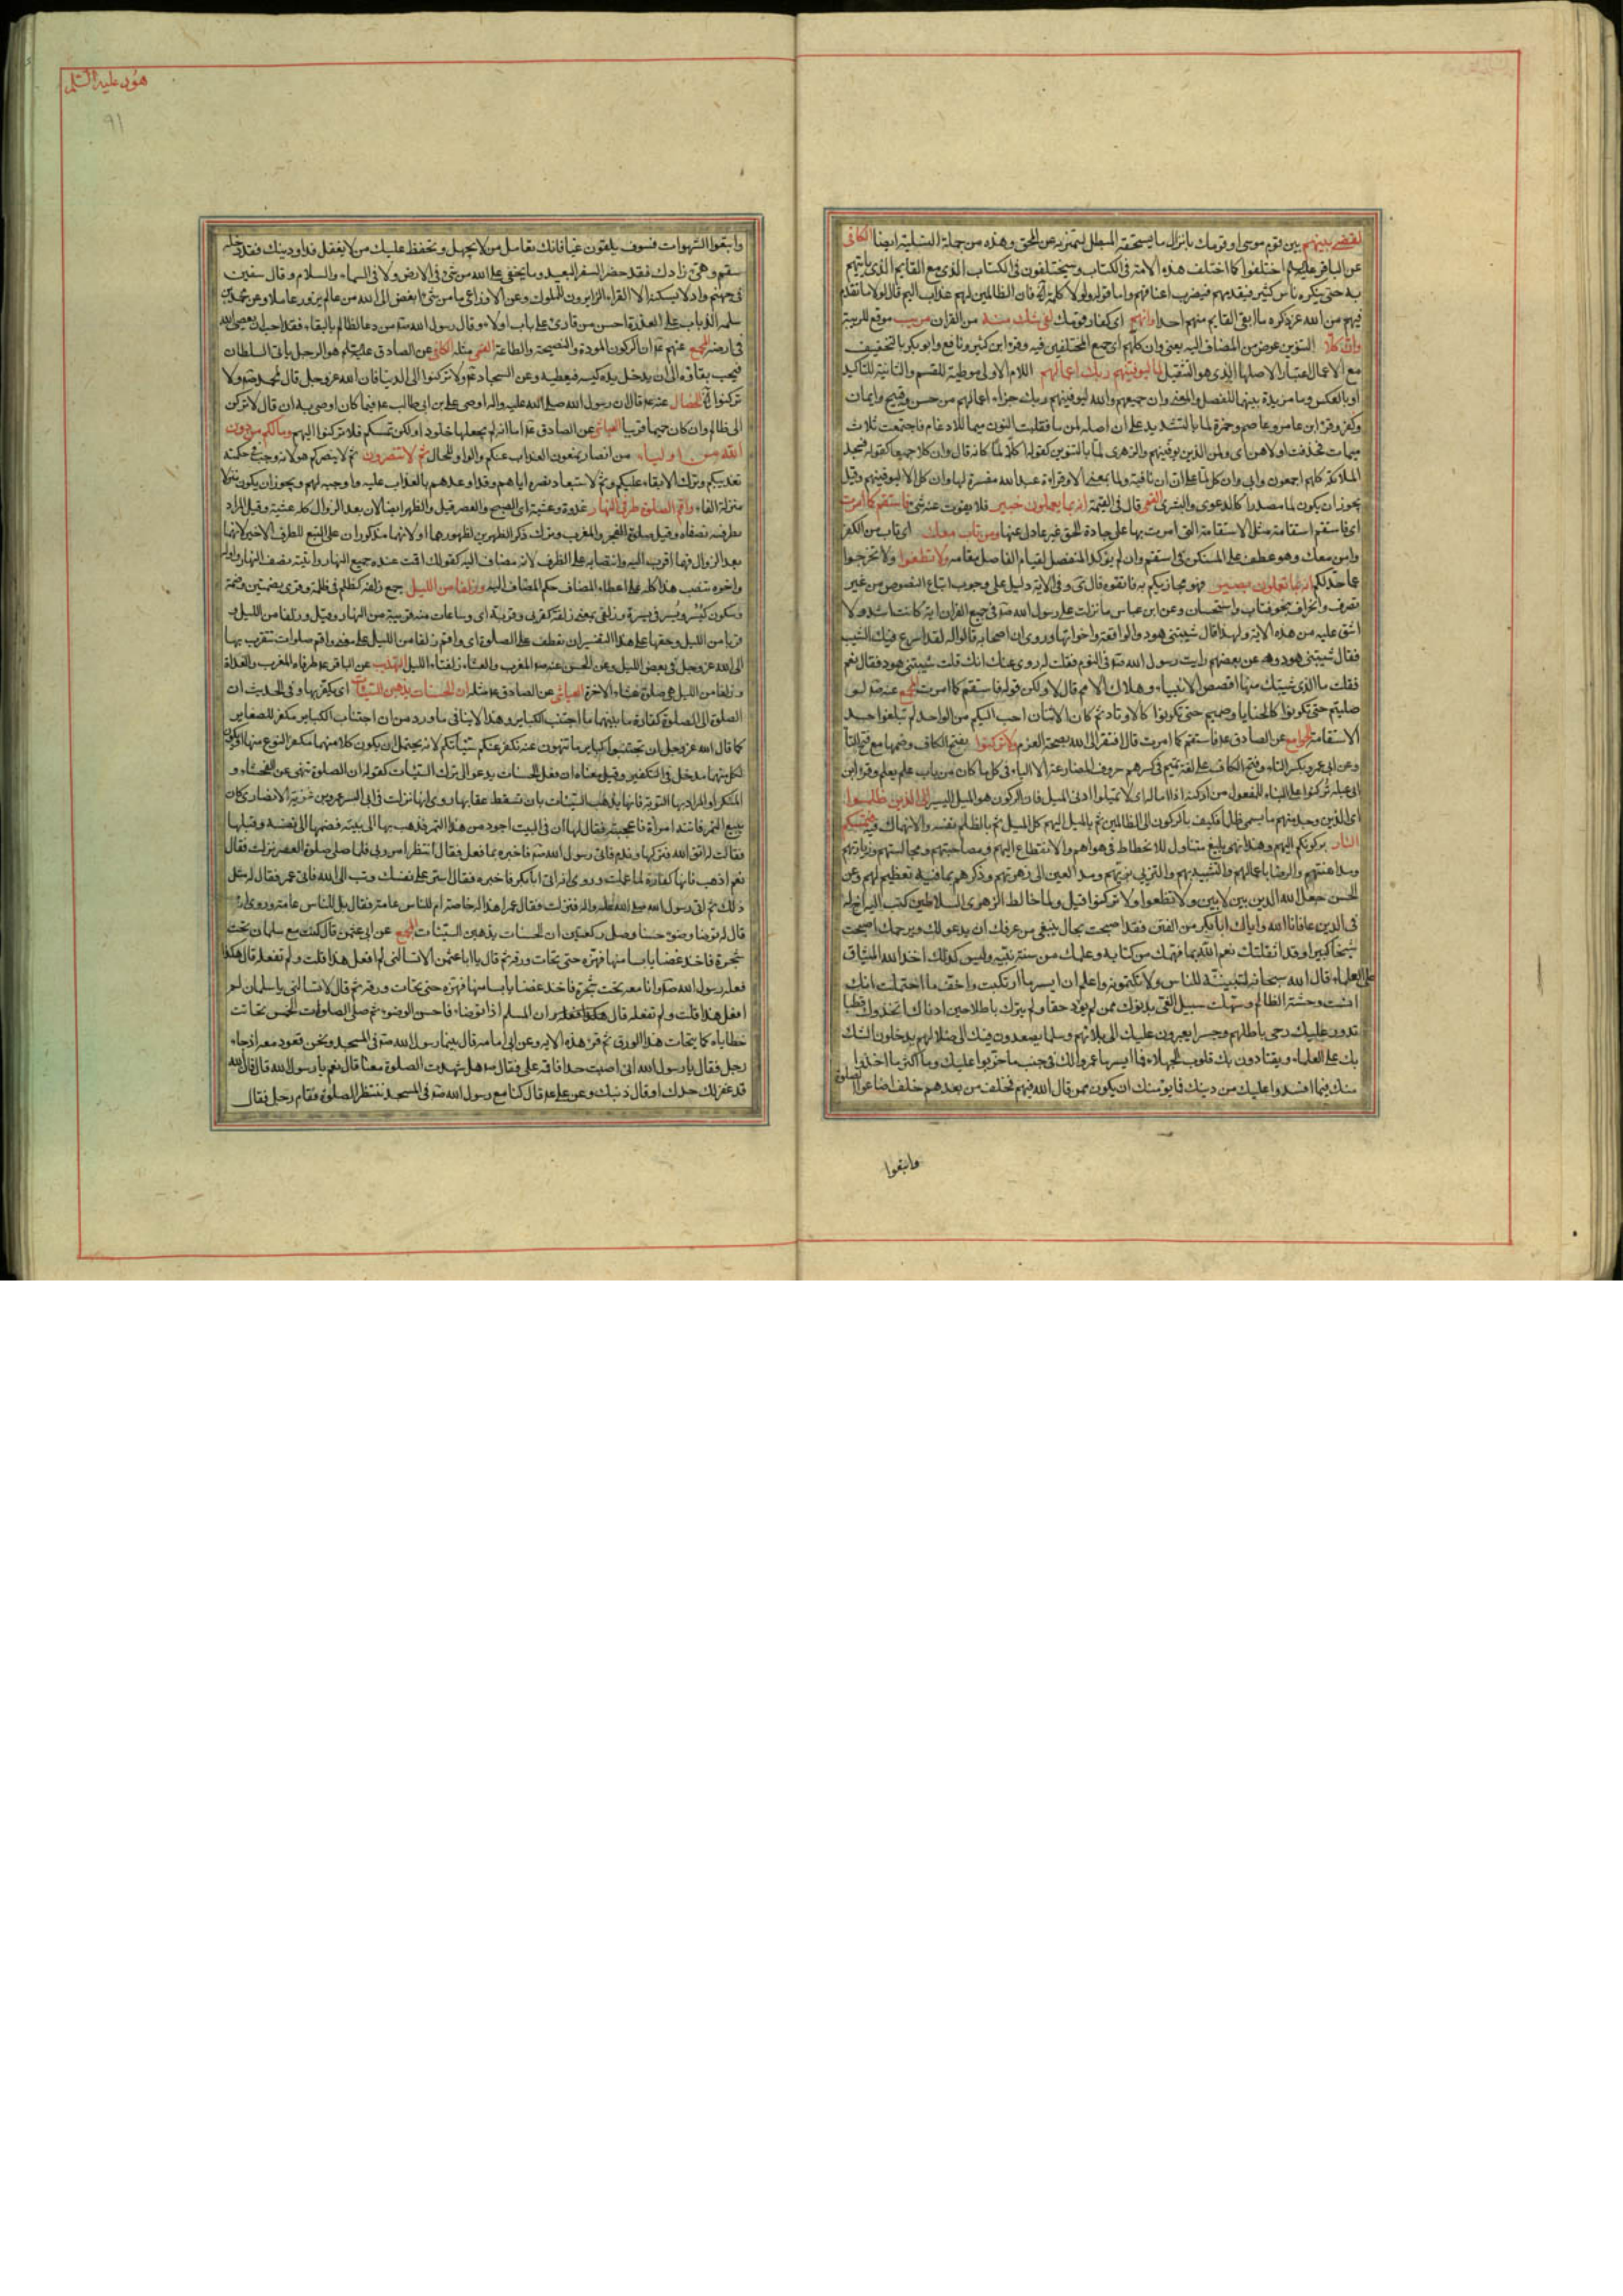 لقضى بينهم بين قوم موسى او قومك بانزال ما يستحقه المبطل ليتميز به عن المحق وهذه من جملة التسلية ايضا الكافى
عن الباقر عليه السلم اختلفوا كما اختلف هذه الامة فى الكتاب وسيختلفون فى الكتاب الذى مع القايم الذى ياتيهم
به حتى ينكره ناس كثير فيقدمهم فيضرب اعناقهم واما قوله ولولا كلمة الفصل فان الظالمين لهم عذاب اليم قال لولا ما تقدم
فيهم من الله عز ذكره ما ابقى القايم منهم احدا وانهم اى كفار قومك لفى شك منه من القران مريب موقع للريبة
وان كلا التنوين عوض من المضاف اليه يعنى وان كلهم اى جميع المختلفين فيه وقرء ابن كثير ونافع وابو بكر بالتخفيف
مع الاعمال اعتبارا لاصلها الذى هو الثقيل لما ليوفينهم ربك اعمالهم اللام الاولى موطية للقسم والثانية للتاكيد
او بالعكس وما مزيدة بينهما للفصل والمعنى وان جميعهم والله ليوفينهم ربك جزاء اعمالهم من حسن وقبيح وايمان
وكفر وقرء ابن عامر وعاصم وحمزة لما بالتشديد على ان اصله لمن ما فقلبت النون ميما للادغام فاجتمعت ثلاث
ميمات فحذفت اولاهن اى ولمن الذين يوفينهم والزهرى لما بالتنوين كقوله اكلا لما كانه قال وان كلا جميعا كقوله فسجد
الملائكة كلهم اجمعون وابى وان كل لما على ان ان نافية ولما بمعنى الا وقراءة عبد الله مفسرة لها وان كل الا ليوفينهم وقيل
يجوز ان يكون لما مصدرا كالدعوى والبشرى القمى قال فى القيمة انه بما يعملون خبير فلا يفوت عنه شى فاستقم كما امرت
اى فاستقم استقامة مثل الاستقامة التى امرت بها على جادة الحق غير عادل عنها ومن تاب معك اى تاب من الكفر
وامن معك وهو عطف على المستكن فى استقم وان لم يؤكد المنفصل لقيام الفاصل مقامه ولا تطغوا ولا تخرجوا
عما حد لكم انه بما تعملون بصير فهو مجازيكم به فاتقوه قال ى وفى الاية دليل على وجوب اتباع النصوص من غير
تصرف وانحراف بنحو قياس واستحسان وعن ابن عباس ما نزلت على رسول الله ص فى جميع القران اية كانت اشد ولا
اشق عليه من هذه الاية ولهذا قال شيبتنى هود والواقعة واخواتها وروى ان اصحابه قالوا له لقد اسرع فيك الشيب
فقال شيبتنى هود وعن بعضهم رايت رسول الله ص فى النوم فقلت له روى عنك انك قلت شيبتنى هود فقال نعم
فقلت ما الذى شيبك منها اقصص الانبياء وهلاك الامم قال لا ولكن قوله فاستقم كما امرت المجمع عنه ص لو
صليتم حتى تكونوا كالحنايا وصمتم حتى تكونوا كالاوتاد ثم كان الاثنان احب اليكم من الواحد لم تبلغوا حد
الاستقامة الجوامع عن الصادق ع فاستقم كما امرت قال افتقر الى الله بصحة العزم ولا تركنوا بفتح الكاف وضمها مع فتح التا
وعن ابى عمرو بكسر التاء وفتح الكاف على لغة تميم فى كسرهم حروف المضارعة الا الياء فى كل ما كان من باب علم يعلم وقرء ابن
ابى عبلة تركنوا على البناء للمفعول من اركنه اذا اماله اى لا تميلوا ادنى الميل فان الركون هو الميل اليسير الى الذين ظلموا
اى الذين وجد منهم ما يسمى ظلما فكيف بالركون الى الظالمين ثم بالميل اليهم كل الميل ثم بالظلم نفسه والانهماك فيه فتمسكم
النار بركونكم اليهم وهذا نهى بليغ متناول للانحطاط فى هواهم والانقطاع اليهم ومصاحبتهم ومجالستهم وزيارتهم
ومداهنتهم والرضا باعمالهم والتشبيه بهم والتزيى بزيهم ومد العين الى زهرتهم وذكرهم بما فيه تعظيم لهم وعن
الحسن جعل الله الدين بين لايين ولا تطغوا ولا تركنوا قيل ولما خالط الزهرى السلاطين كتب اليه اخ له
فى الدين عافانا الله واياك ابا بكر من الفتن فقد اصبحت بحال ينبغى من عرفك ان يدعو لك ويرحمك اصبحت
شيخا كبيرا وقد اثقلتك نعم الله بما فهمك من كتابه وعلمك من سنة نبيه وليس كذلك اخذ الله الميثاق
على العلماء قال الله سبحانه لتبيننه للناس ولا تكتمونه واعلم ان ايسر ما ارتكبت واخف ما احتملت انك
انست وحشة الظالم وسهلت سبيل الغى بدنوك ممن لم يؤد حقا ولم يترك باطلا حين ادناك اتخذوك قطبا
تدور عليك رحى باطلهم وجسرا يعبرون عليك الى بلائهم وسلما يصعدون فيك الى ضلالهم يدخلون الشك
بك على العلماء ويقتادون بك قلوب الجهلاء فما ايسر ما عمروا لك فى جنب ما خربوا عليك وما اكثر ما اخذوا
منك فيما افسدوا عليك من دينك فما يؤمنك ان يكون ممن قال الله فيهم فخلف من بعدهم خلف اضاعوا الصلوة
واتبعوا
هود عليه السلم
٩١
واتبعوا الشهوات فسوف يلقون غيا فانك تعامل من لا يجهل ويحفظ عليك من لا يغفل فداو دينك فقد دخله
سقم وهيئ زادك فقد حضر السفر البعيد وما يخفى على الله من شئ فى الارض ولا فى السماء والسلام وقال سفين
فى جهنم واد لا يسكنه الا القراء الزايرون للملوك وعن الاوزاعى ما من شئ ابغض الى الله من عالم يزور عاملا وعن محمد بن
سلمة الذباب على العذرة احسن من قارئ على باب اولاء وقال رسول الله ص من دعا لظالم بالبقاء فقد احب ان يعصى الله
فى ارضه المجمع عنهم ع ان الركون المودة والنصيحة والطاعة القمى مثله الكافى عن الصادق عليه السلم هو الرجل ياتى السلطان
فيحب بقاءه الى ان يدخل يده كيسه فيعطيه وعن السجاد ع ولا تركنوا الى الدنيا فان الله عز وجل قال لمحمد ص ولا
تركنوا الخ الخصال عنه ع قال ان رسول الله صلى الله عليه واله اوصى على بن ابى طالب ع فيما كان اوصى به ان قال لا تركن
الى ظالم وان كان حميما قريبا العياشى عن الصادق ع اما انه لم يجعلها خلودا ولكن تمسكم فلا تركنوا اليهم وما لكم من دون
الله من اولياء من انصار يمنعون العذاب عنكم والواو للحال ثم لا تنصرون ثم لا ينصركم هو لانه وجب فى حكمته
تعذيبكم وترك الابقاء عليكم وثم لاستبعاد نصره اياهم وقد اوعدهم بالعذاب عليه واوجبه لهم ويجوز ان يكون منزلا
منزلة الفاء واقم الصلوة طرفى النهار غدوة وعشية اى الصبح والعصر وقيل والظهر ايضا لان بعد الزوال كله عشية وقيل المراد
بطرفيه نصفاه وقيل صلوة الفجر والمغرب وترك ذكر الظهرين لظهورهما او لانهما مذكوران على التبع للطرف الاخير لانهما
بعد الزوال فهما اقرب اليه وانتصابه على الظرف لانه مضاف اليه كقولك اقمت عنده جميع النهار واتيته نصف النهار واوله
واخره تنصب هذا كله على اعطاء المضاف حكم المضاف اليه وزلفا من الليل جمع زلفة كظلم فى ظلمة وقرئ بضمتين وضمة
وسكون كيسر ويسر فى يسرة وزلفى بمعنى زلفة كقربى وقربة اى وساعات منه قريبة من النهار وقيل وزلفا من الليل و
قربا من الليل وحقها على هذا التفسير ان تعطف على الصلوة اى واقم زلفا من الليل على معنى واقم صلوات تتقرب بها
الى الله عز وجل فى بعض الليل وعن الحسن عنه ص المغرب والعشاء زلفتاء الليل التهذيب عن الباقر ع طرفاه المغرب والغداة
وزلفا من الليل هى صلوة عشاء الاخرة العياشى عن الصادق ع مثله ان الحسنات يذهبن السيئات اى يكفرنها وفى الحديث ان
الصلوة الى الصلوة كفارة ما بينهما ما اجتنب الكباير وهذا لا ينافى ما ورد من ان اجتناب الكباير مكفر للصغاير
كما قال الله عز وجل ان تجتنبوا كباير ما تنهون عنه نكفر عنكم سيئاتكم لانه يحتمل ان يكون كلا منهما مكفر النوع منها او يكون
لكل منهما مدخل فى التكفير وقيل معناه ان فعل الحسنات يدعو الى ترك السيئات كقوله ان الصلوة تنهى عن الفحشاء و
المنكر او المراد بها التوبة فانها يذهب السيئات بان تسقط عقابها روى انها نزلت فى ابى اليسر عمرو بن غزية الانصارى كان
يبيع التمر فاتته امراة فاعجبته فقال لها ان فى البيت اجود من هذا التمر فذهب بها الى بيته فضمها الى نفسه وقبلها
فقالت له اتق الله فتركها وندم فاتى رسول الله ص فاخبره بما فعل فقال انتظر امر ربى فلما صلى صلوة العصر نزلت فقال
نعم اذهب فانها كفارة لما عملت وروى انه اتى ابا بكر فاخبره فقال استر على نفسك وتب الى الله فاتى عمر فقال له مثل
ذلك ثم اتى رسول الله صلى الله عليه واله فنزلت فقال عمر اهذا له خاصة ام للناس عامة فقال بل للناس عامة وروى انه
قال له توضا وضوء حسنا وصل ركعتين ان الحسنات يذهبن السيئات المجمع عن ابى عثمن قال كنت مع سلمان تحت
شجرة فاخذ غصنا يابسا منها فهزه حتى تحات ورقه ثم قال يا ابا عثمن الا تسالنى لم افعل هذا قلت ولم تفعله قال هكذا
فعله رسول الله ص وانا معه تحت شجرة فاخذ غصنا يابسا منها فهزه حتى تحات ورقه ثم قال الا تسالنى يا سلمان لم
افعل هذا قلت ولم تفعله قال ان المسلم اذا توضاء فاحسن الوضوء ثم صلى الصلوات الخمس تحاتت
خطاياه كما يتحات هذا الورق ثم قرء هذه الاية وعن ابى امامة قال بينما رسول الله ص فى المسجد ونحن قعود معه اذ جاء
رجل فقال يا رسول الله انى اصبت حدا فاقمه على فقال هل شهدت الصلوة معنا قال نعم يا رسول الله قال فان الله
قد غفر لك حدك او قال ذنبك وعن على ع قال كنا مع رسول الله ص فى المسجد ننتظر الصلوة فقام رجل فقال